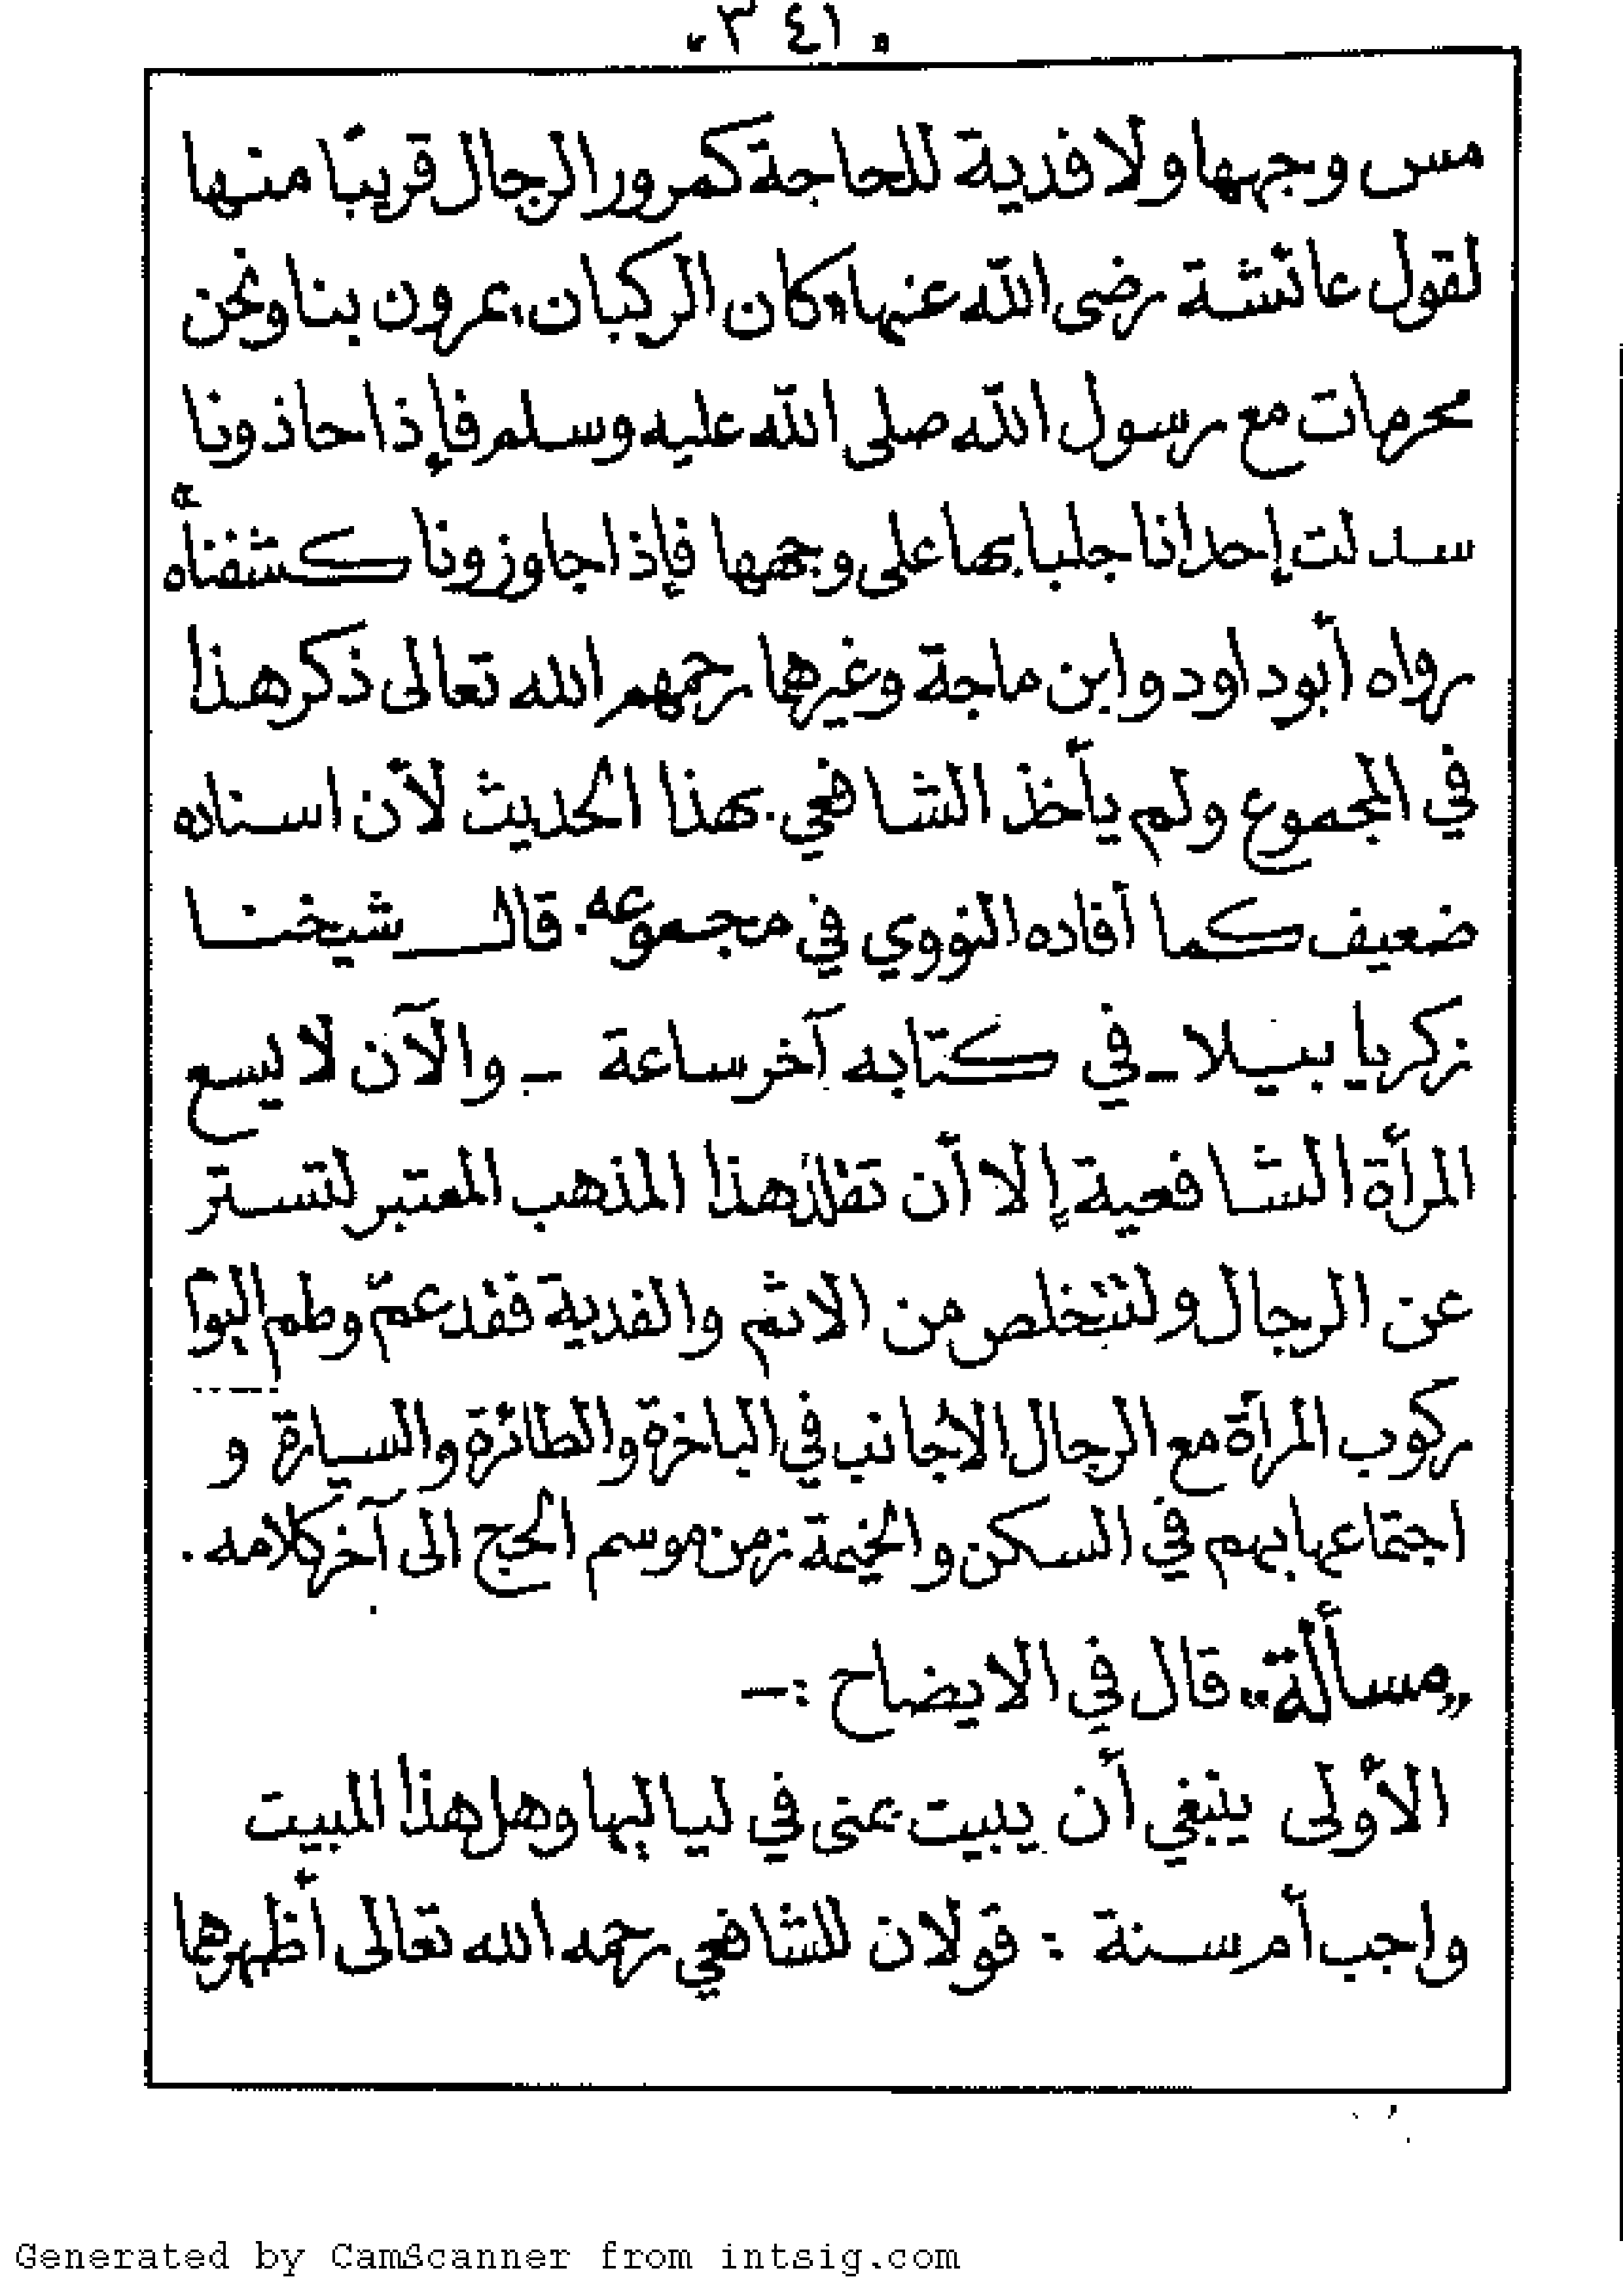 ٣٤١
مس وجهها ولا فدية للحاجة كمرور الرجال قريبًا منها
لقول عائشة رضى الله عنها «كان الركبان يمرون بنا ونحن
محرمات مع رسول الله صلى الله عليه وسلم فإذا حاذونا
سدلت إحدانا جلبابها على وجهها فإذا جاوزونا كشفناه»
رواه أبوداود وابن ماجة وغيرها رحمهم الله تعالى ذكر هذا
في المجموع ولم يأخذ الشافعي بهذا الحديث لأن اسناده
ضعيف كما أفاده النووي في مجموعه. قال شيخنا
زكريا بيلا - في كتابه آخر ساعة - والآن لا يسع
المرأة الشافعية إلا أن تقلد هذا المذهب المعتبر لتستتر
عن الرجال ولتتخلص من الاثم والفدية فقد عمّ وطم
ركوب المرأة مع الرجال الأجانب في الباخرة والطائرة والسيارة و
اجتماعها بهم في السكن والخيمة زمن موسم الحج الى آخر كلامه.
«مسألة» قال في الايضاح :-
الأولى ينبغي أن يبيت بمنى في لياليها وهل هذا المبيت
واجب أم سنة : قولان للشافعي رحمه الله تعالى أظهرهما
Generated by CamScanner from intsig.com